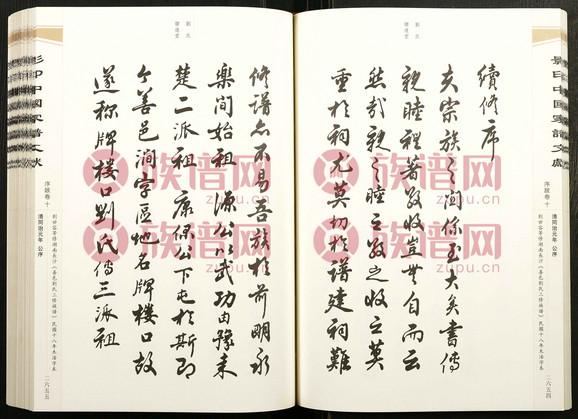 影印中国家譜文獻
序跋卷十
清同治元年 公序
二六五四
劉氏
續修序
夫宗族之間係至大矣書傳
親睦禮著敬收豈無自而云
然哉親之睦之敬之收之莫
重於祠尤莫切於譜建祠難
劉氏
修譜亦不易吾族於前明永
樂間始祖 源公以武功由豫来
楚二派祖 康保公下屯於斯即
今善邑澗字區地名牌樓口故
遂称牌樓口劉氏傳三派祖
影印中國家譜文獻
序跋卷十
清同治元年 公序
二六五五
族谱网
zupu.cn
族谱网
zupu.cn
族谱网
zupu.cn
族谱网
zupu.cn